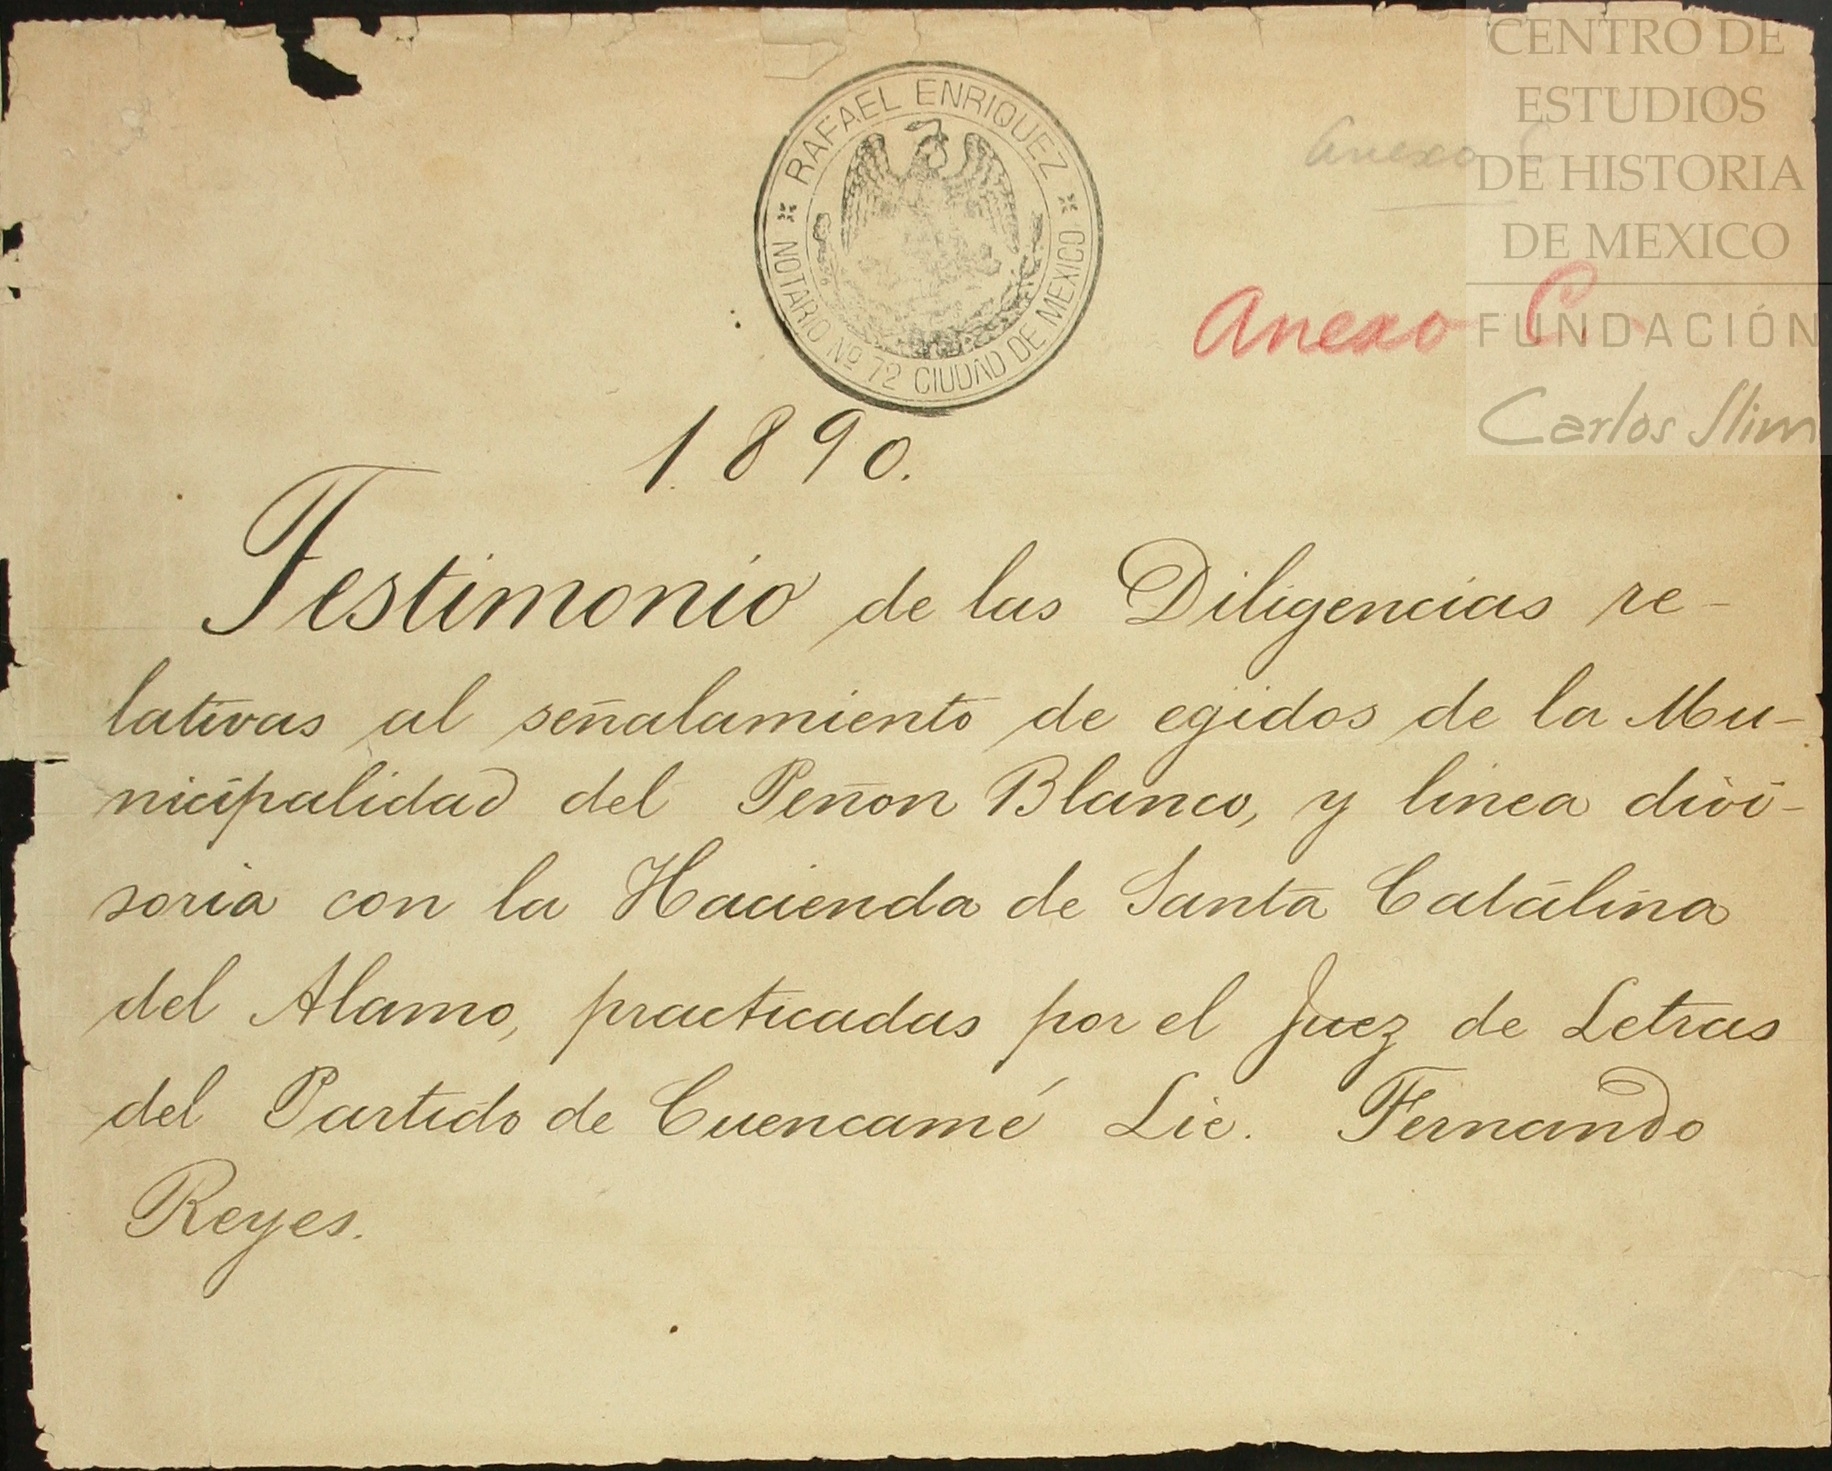 CENTRO DE
ESTUDIOS
DE HISTORIA
DE MEXICO
FUNDACIÓN
Carlos Slim
RAFAEL ENRIQUEZ
NOTARIO Nº 72 CIUDAD DE MEXICO
Anexo C
Anexo C.
1890.
Testimonio de las Diligencias re-
lativas al señalamiento de egidos de la Mu-
nicipalidad del Peñon Blanco, y linea divi-
soria con la Hacienda de Santa Catalina
del Alamo, practicadas por el Juez de Letras
del Partido de Cuencamé Lic. Fernando
Reyes.